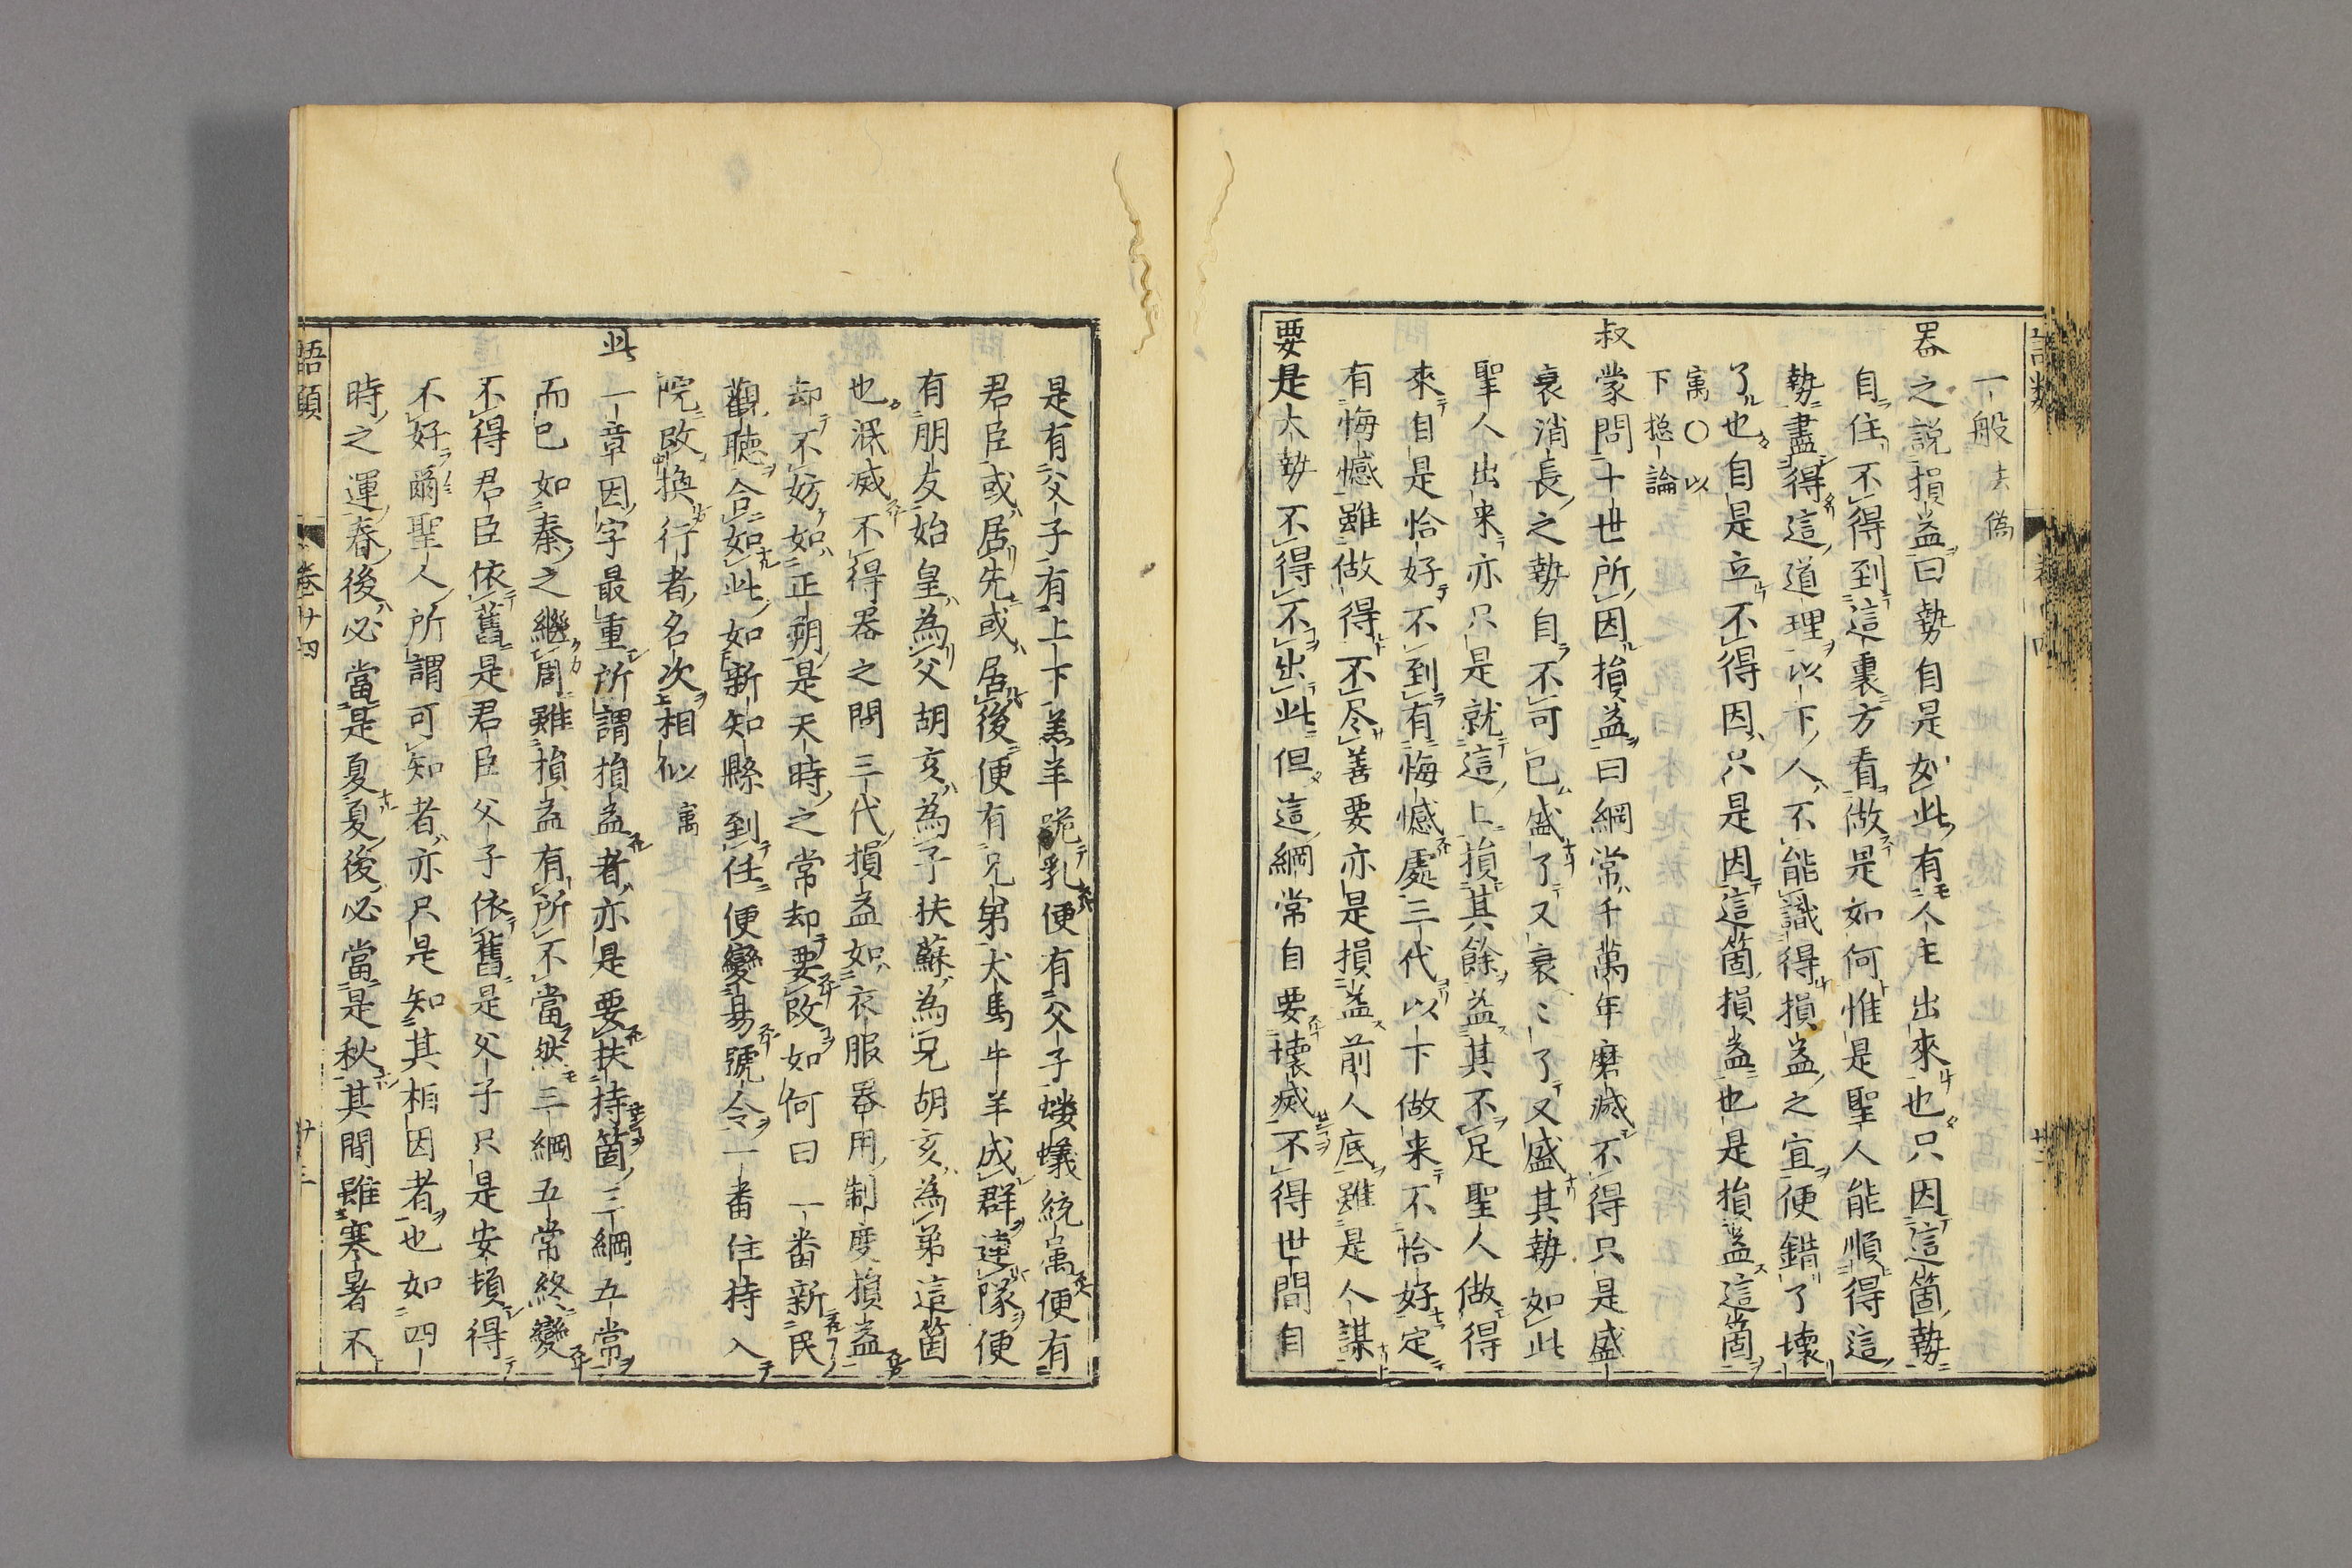 一般去偽
器之説損益曰勢自是如此有人主出來也只因這箇勢
自住不得到這裏方看做是如何惟是聖人能順得這
勢盡得這道理以下人不能識得損益之宜便錯了壞
了也自是立不得因只是因這箇損益也是損益這箇
㝢〇以
下捴論
叔蒙問十世所因損益曰綱常千萬年磨滅不得只是盛
衰消長之勢自不可已盛了又衰〻了又盛其勢如此
聖人出来亦只是就這上損其餘益其不足聖人做得
來自是恰好不到有悔憾處三代以下做来不恰好定
有悔憾雖做得不尽善要亦是損益前人底雖是人謀
要是大勢不得不出此但這綱常自要壞滅不得世間自
是有父子有上下羔羊跪乳便有父子螻蟻統屬便有
君臣或居先或居後便有兄弟犬馬牛羊成群連隊便
有朋友始皇為父胡亥為子扶蘇為兄胡亥為弟這箇
也泯滅不得器之問三代損益如衣服器用制度損益
却不妨如正朔是天時之常却要改如何曰一番新民
觀聽合如此如新知縣到任便變易號令一番住持入
院改換行者名次相似㝢
此一章因字最重所謂損益者亦是要扶持箇三綱五常
而已如秦之繼周雖損益有所不當然三綱五常終變
不得君臣依舊是君臣父子依舊是父子只是安頓得
不好爾聖人所謂可知者亦只是知其相因者也如四
時之運春後必當是夏夏後必當是秋其間雖寒暑不
語類
卷廿四
廿三